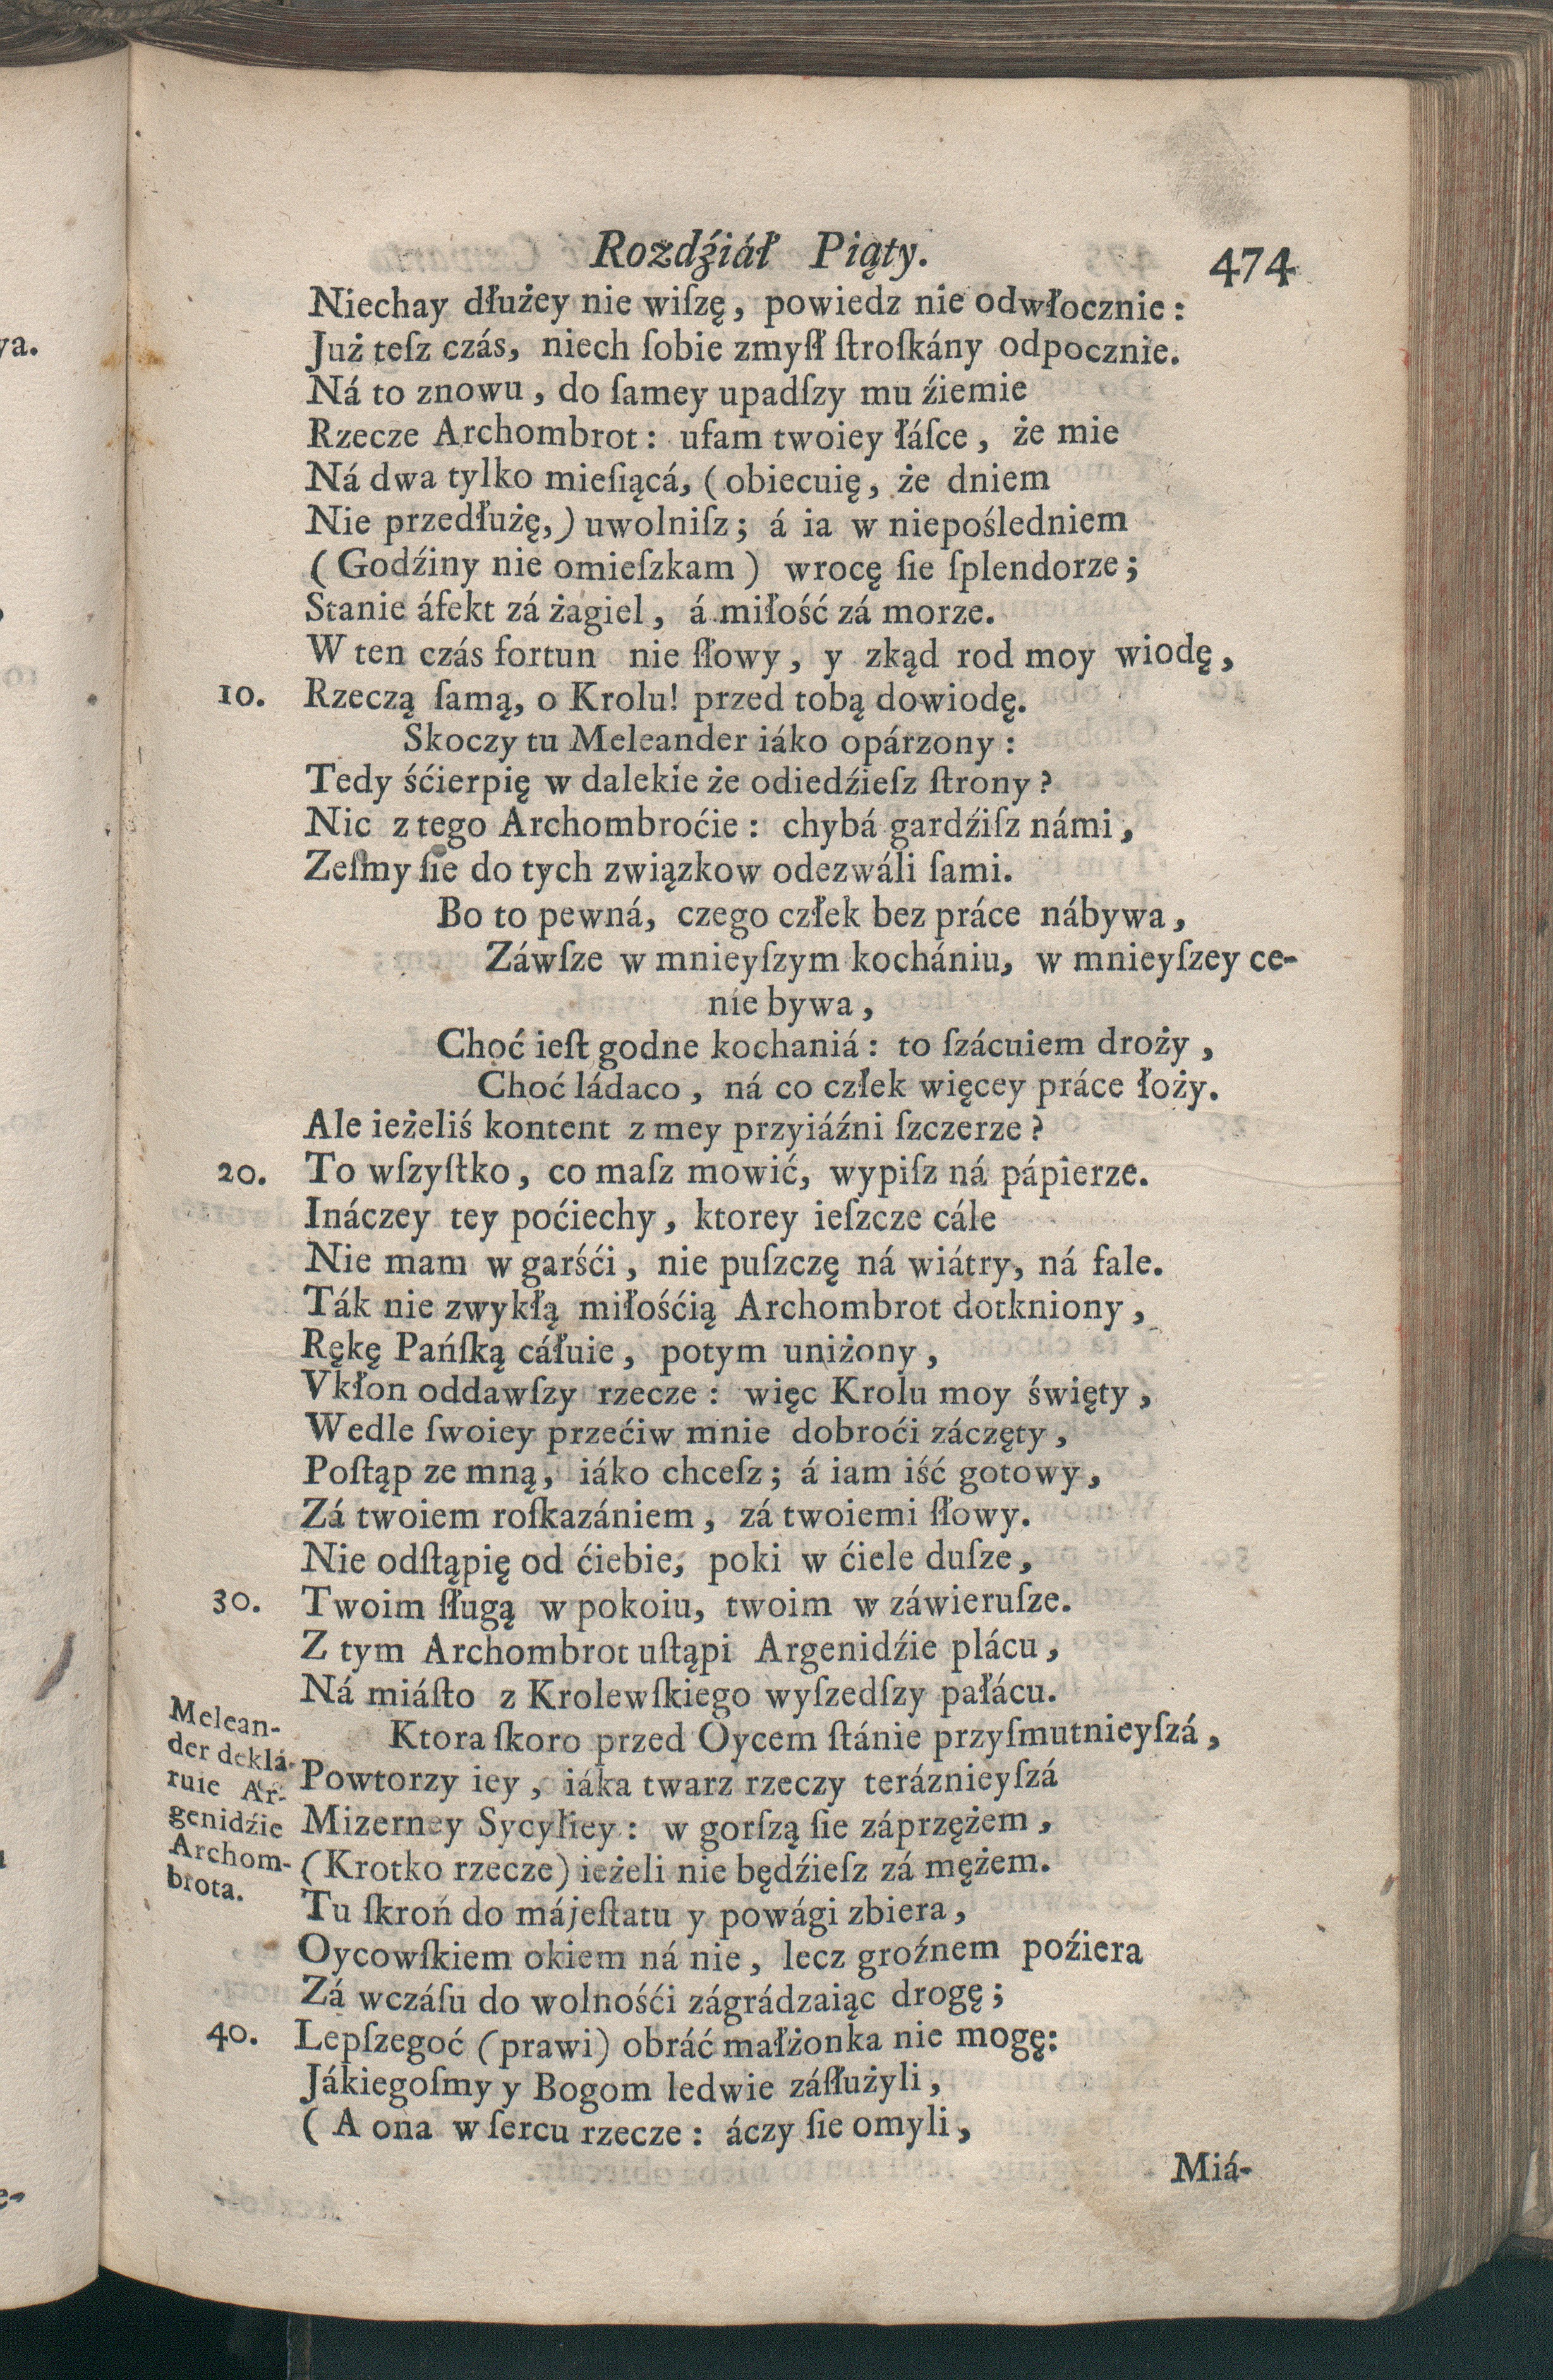 Rozdźiáł Piąty.
474
Niechay dłużey nie wiſzę, powiedz nie odwłocznie:
Już teſz czás, niech ſobie zmyſł ſtroſkány odpocznie.
Ná to znowu, do ſamey upadſzy mu źiemie
Rzecze Archombrot: ufam twoiey łáſce, że mie
Ná dwa tylko mieſiącá, (obiecuię, że dniem
Nie przedłużę,) uwolniſz; á ia w niepośledniem
(Godźiny nie omieſzkam) wrocę ſie ſplendorze;
Stanie áfekt zá żagiel, á miłość zá morze.
W ten czás fortun nie ſłowy, y zkąd rod moy wiodę,
10. Rzeczą ſamą, o Krolu! przed tobą dowiodę.
Skoczy tu Meleander iáko opárzony:
Tedy śćierpię w dalekie że odiedźieſz ſtrony?
Nic z tego Archombroćie: chybá gardźiſz námi,
Zeſmy ſie do tych związkow odezwáli ſami.
Bo to pewná, czego człek bez práce nábywa,
Záwſze w mnieyſzym kochániu, w mnieyſzey ce-
nie bywa,
Choć ieſt godne kochaniá: to ſzácuiem droży,
Choć ládaco, ná co człek więcey práce łoży.
Ale ieżeliś kontent z mey przyiáźni ſzczerze?
20. To wſzyſtko, co maſz mowić, wypiſz ná pápierze.
Ináczey tey poćiechy, ktorey ieſzcze cále
Nie mam w garśći, nie puſzczę ná wiátry, ná fale.
Ták nie zwykłą miłośćią Archombrot dotkniony,
Rękę Pańſką cáłuie, potym uniżony,
Vkłon oddawſzy rzecze: więc Krolu moy święty,
Wedle ſwoiey przećiw mnie dobroći záczęty,
Poſtąp ze mną, iáko chceſz; á iam iść gotowy,
Zá twoiem roſkazániem, zá twoiemi ſłowy.
Nie odſtąpię od ćiebie, poki w ćiele duſze,
30. Twoim ſługą w pokoiu, twoim w záwieruſze.
Z tym Archombrot uſtąpi Argenidźie plácu,
Ná miáſto z Krolewſkiego wyſzedſzy pałácu.
Melean-
der deklá-
ruie Ar-
genidźie
Archom-
brota.
Ktora ſkoro przed Oycem ſtánie przyſmutnieyſzá,
Powtorzy iey, iáka twarz rzeczy teráznieyſzá
Mizerney Sycyliey: w gorſzą ſie záprzężem,
(Krotko rzecze) ieżeli nie będźieſz zá mężem.
Tu ſkroń do májeſtatu y powági zbiera,
Oycowſkiem okiem ná nie, lecz groźnem poźiera
Zá wczáſu do wolnośći zágrádzaiąc drogę;
40. Lepſzegoć (prawi) obráć małżonka nie mogę:
Jákiegoſmy y Bogom ledwie záſłużyli,
(A ona w ſercu rzecze: áczy ſie omyli,
Miá-